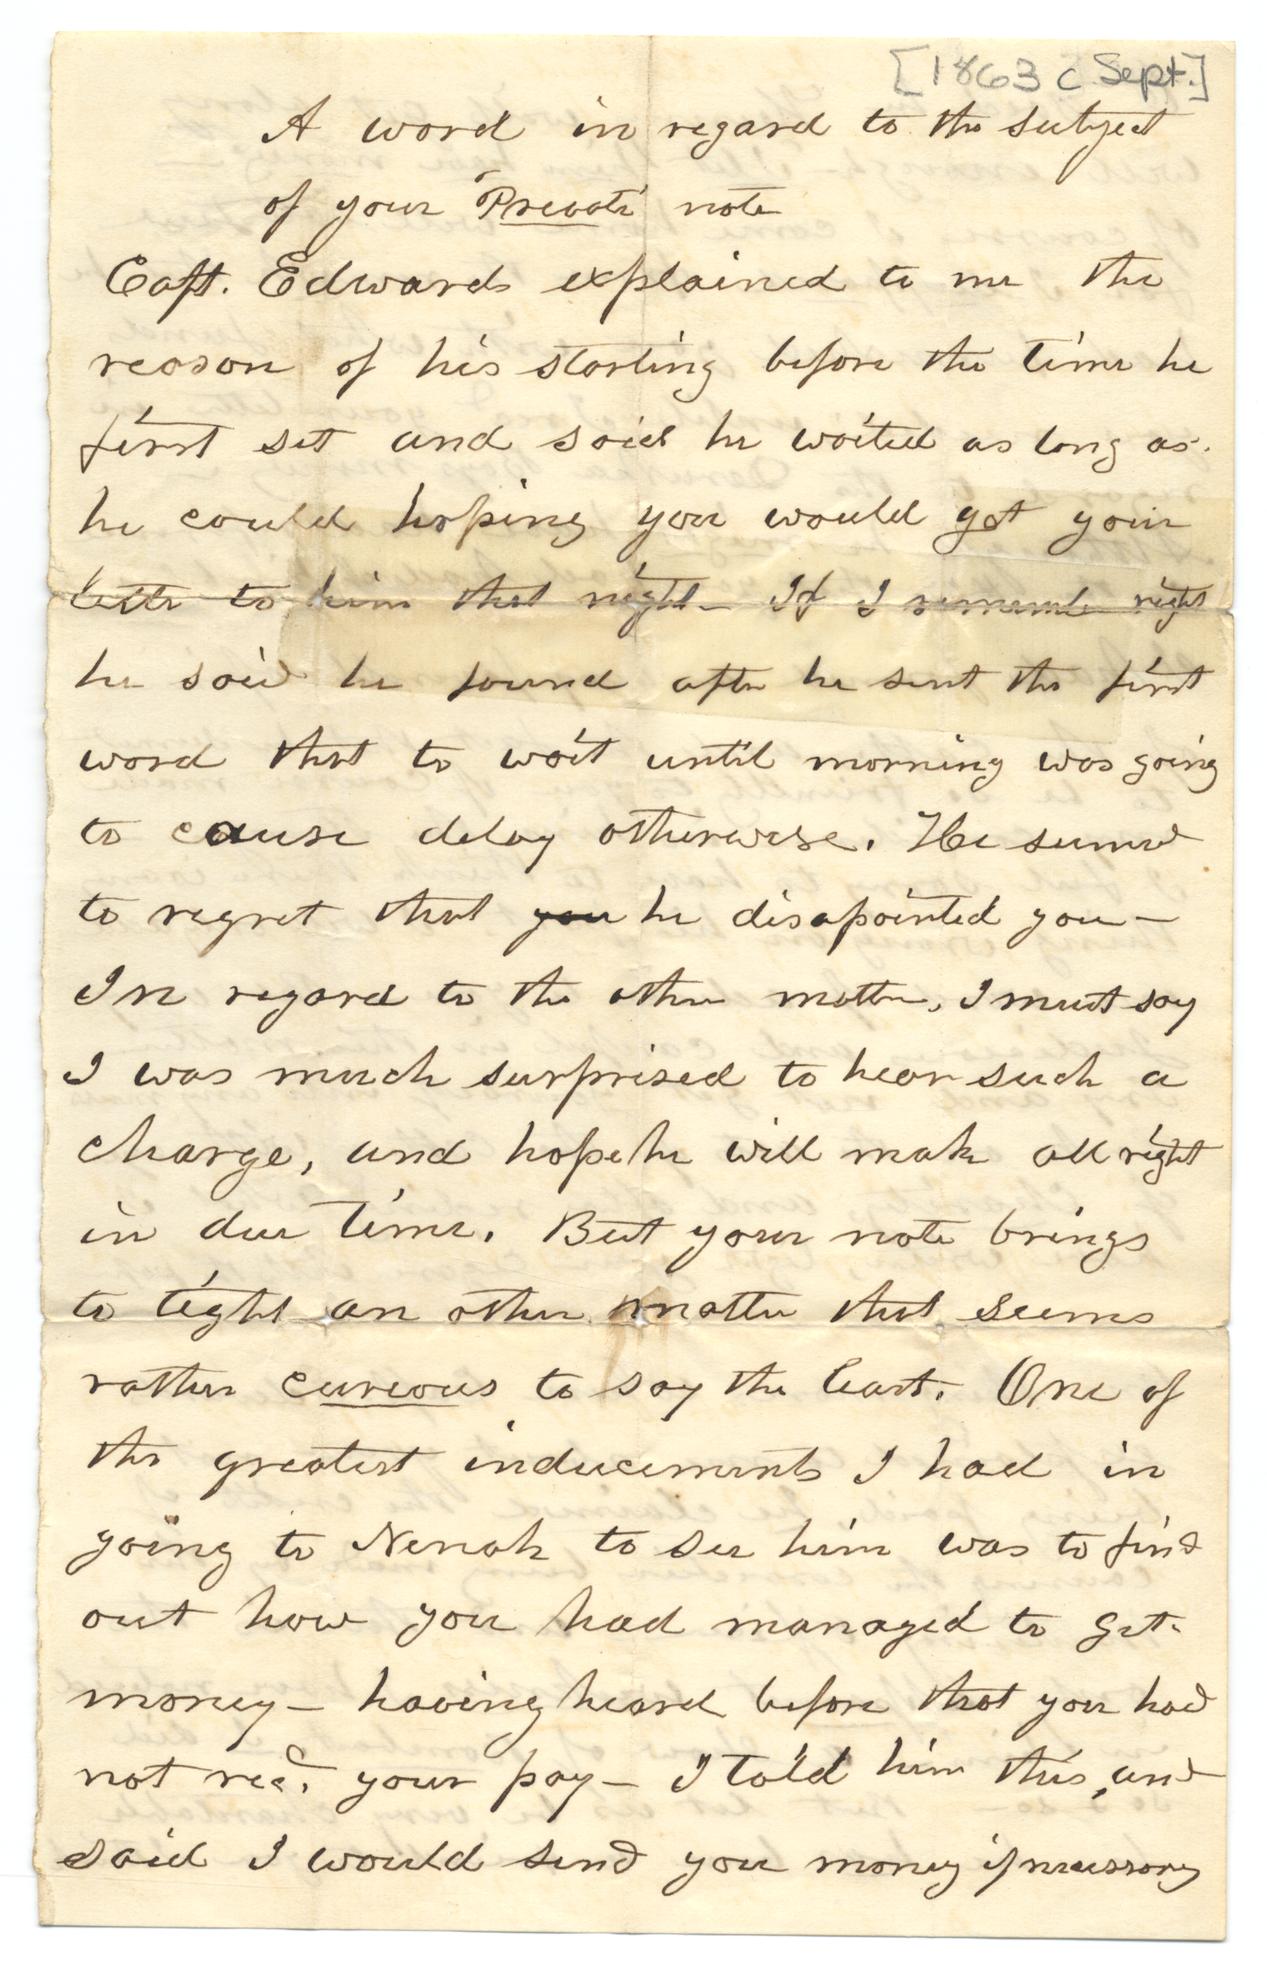 [1863 c Sept.]
A word in regard to the subject
of your "Private" note
Capt. Edwards explained to me the
reason of his starting before the time he
first set and said he waited as long as
he could hoping you would get your
letter to him that night – If I remember right
he said he found after he sent the first
word that to wait until morning was going
to cause delay otherwise. He seemed
to regret that you he disapointed you –
In regard to the other matter, I must say
I was much surprised to hear such a
charge, and hope he will make all right
in due time. But your note brings
to light an other matter that seems
rather curious to say the least. One of
the greatest inducements I had in
going to Nenah to see him was to find
out how you had managed to get
money – having heard before that you had
not recd. your pay – I told him this, and
said I would send you money if necessary